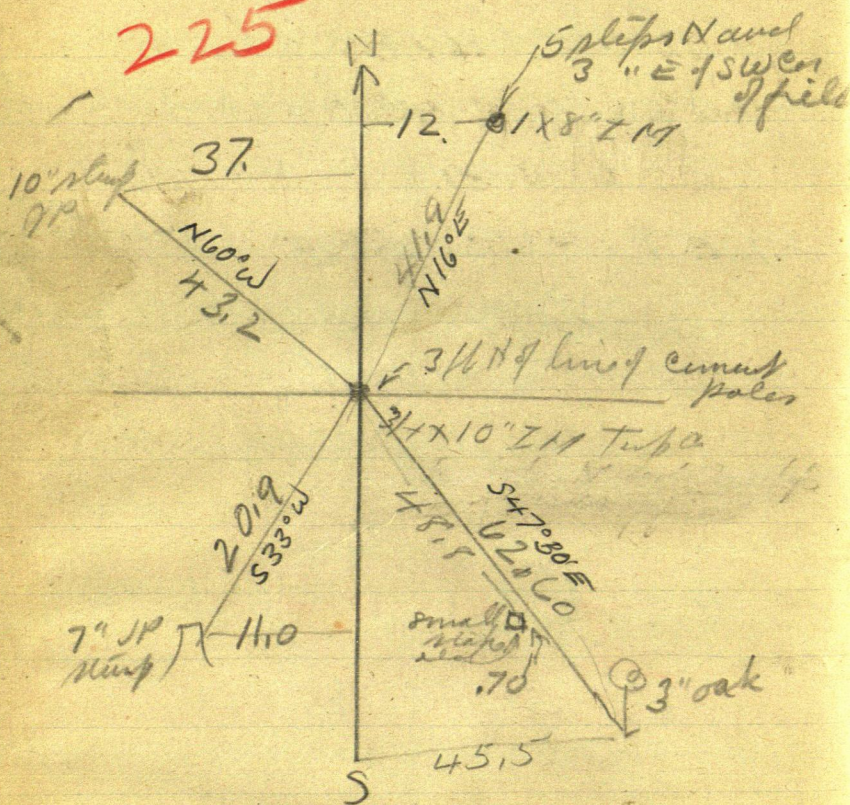 225
N
5 steps N and
3 " E of SW Cor
of field
12.
1 x 8" I M
37.
10" stump
JP
N60°W
43.2
41.9
N16°E
3 ft N of line of cement
poles
3/4 x 10" I M
48.8
S47°30'E
62.60
20.9
S33°W
7" JP
stump
11.0
small
.70
3" oak
45.5
S